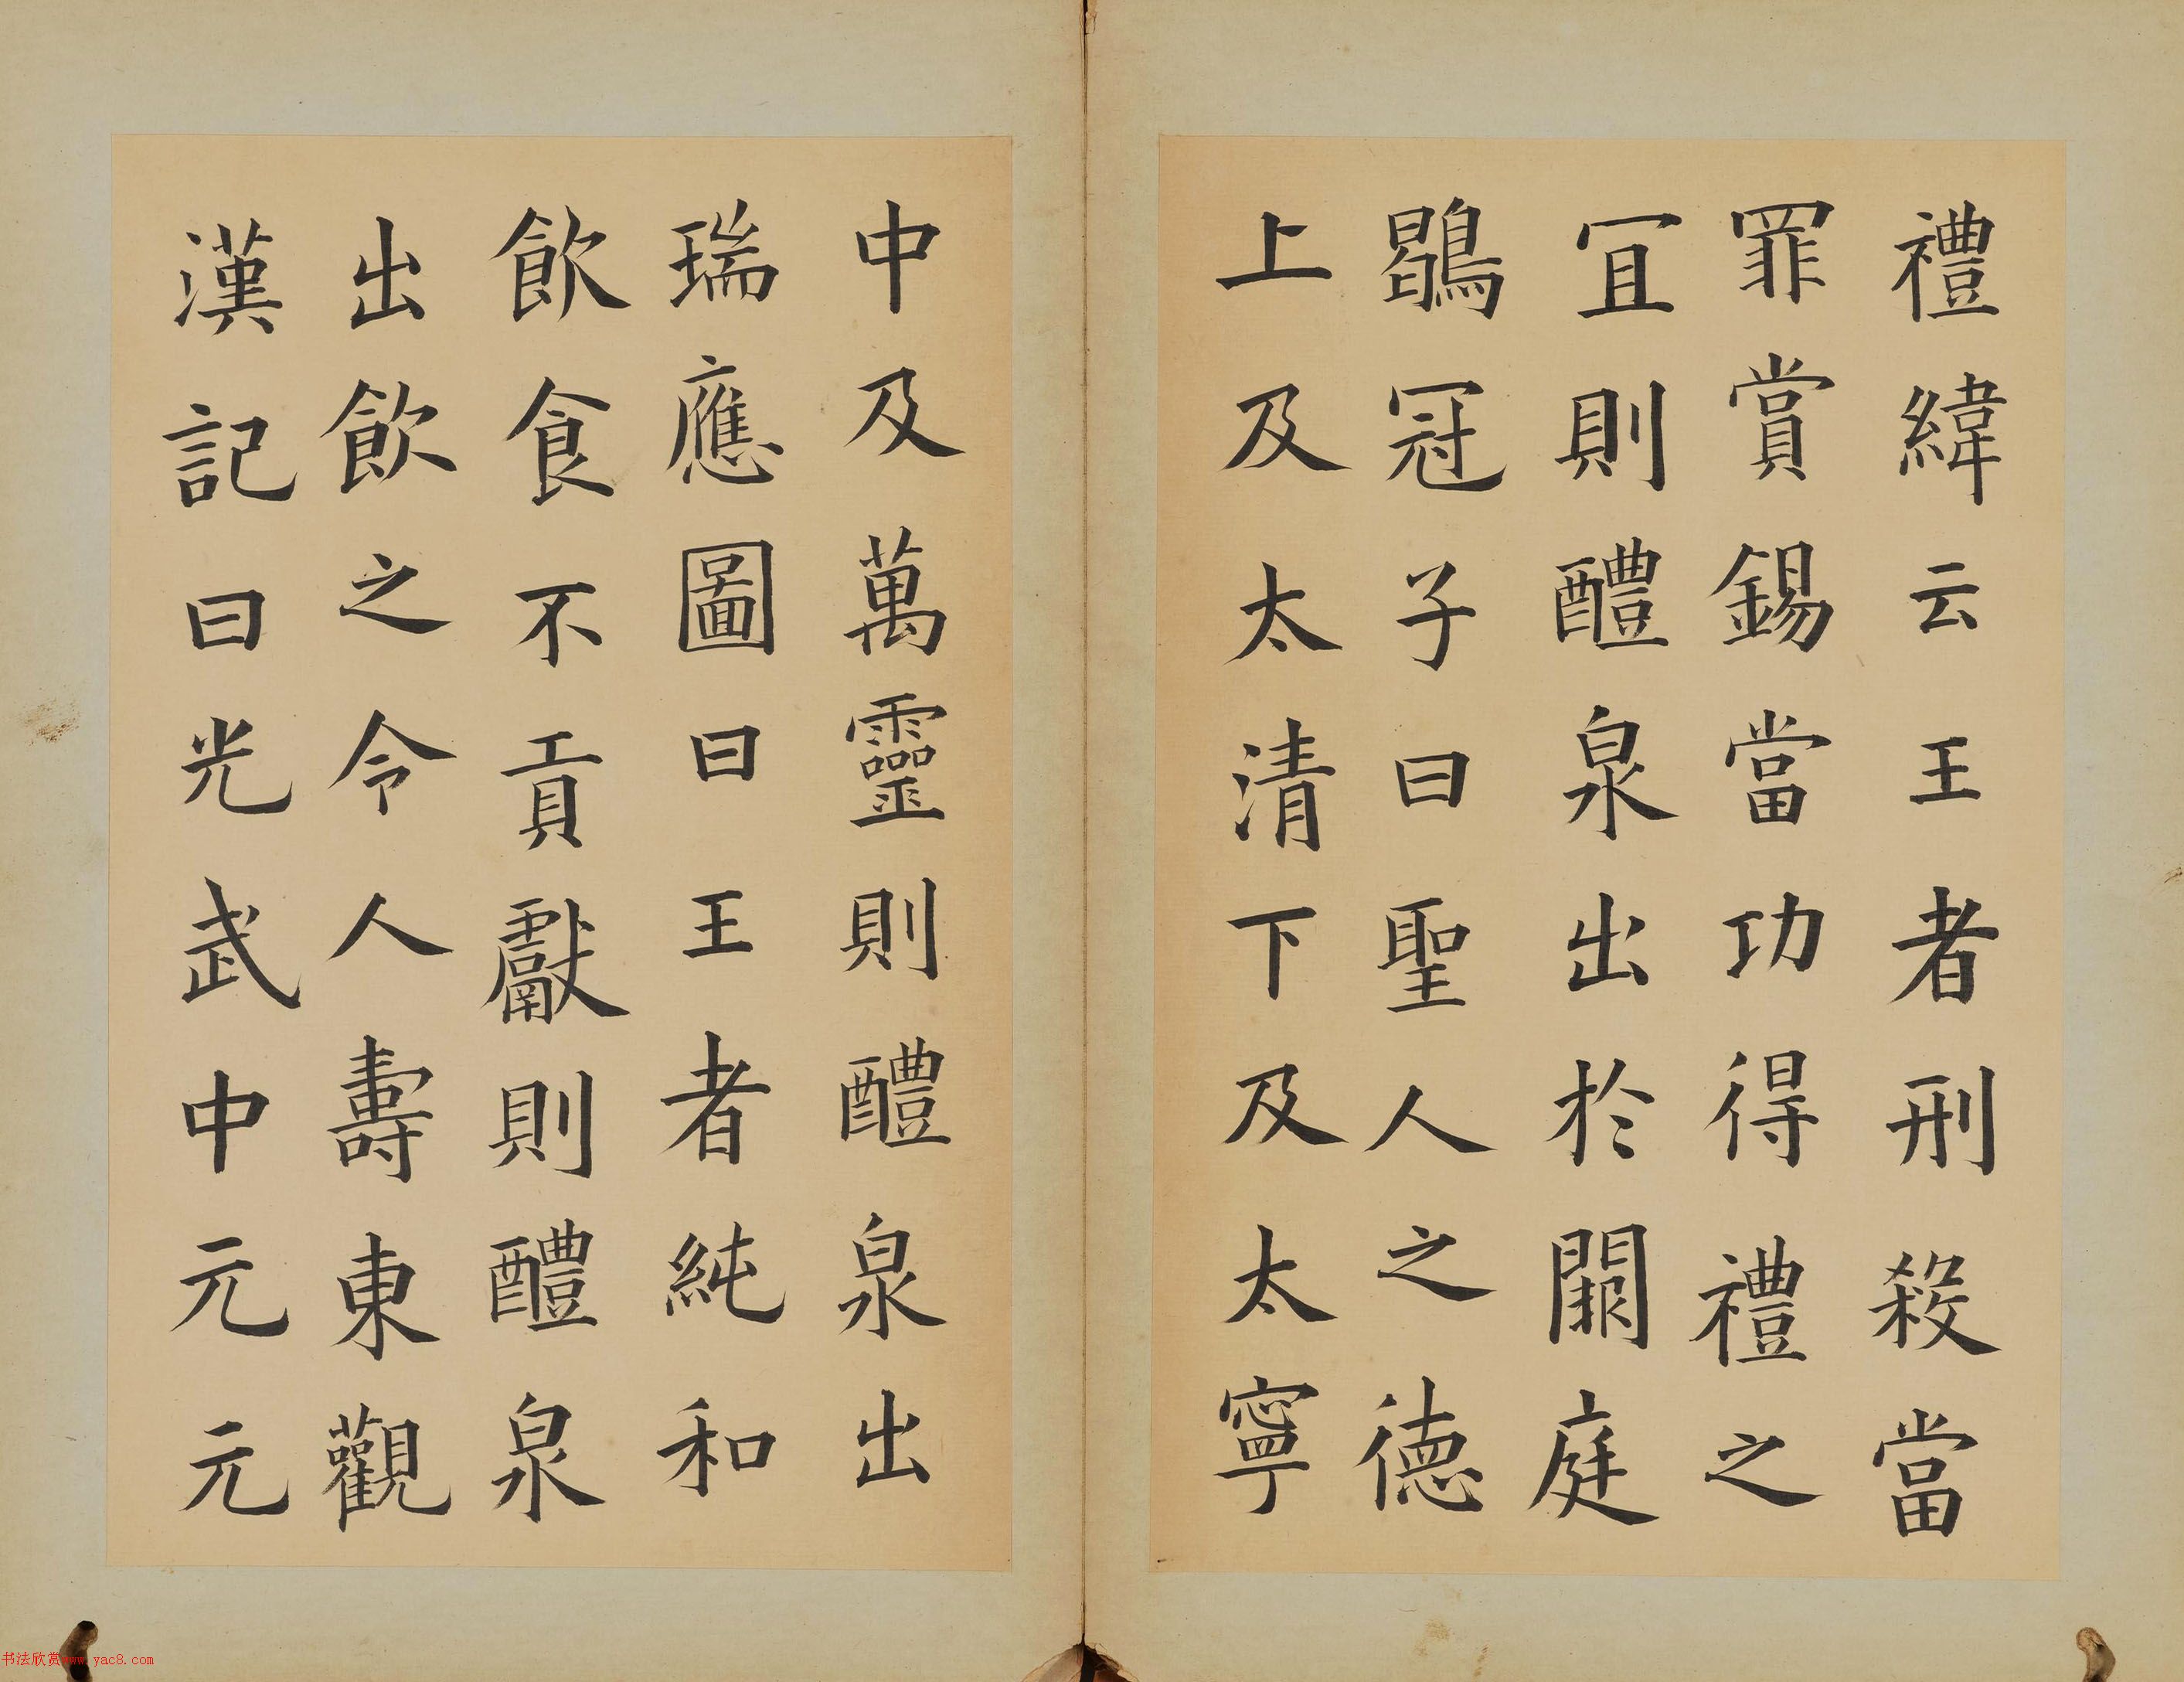 禮緯云王者刑殺當
罪賞錫當功得禮之
冝則醴泉出於闕庭
鶡冠子曰聖人之德
上及太清下及太寧
中及萬靈則醴泉出
瑞應圖曰王者純和
飲食不貢獻則醴泉
出飲之令人壽東觀
漢記曰光武中元元
书法欣赏www.yac8.com